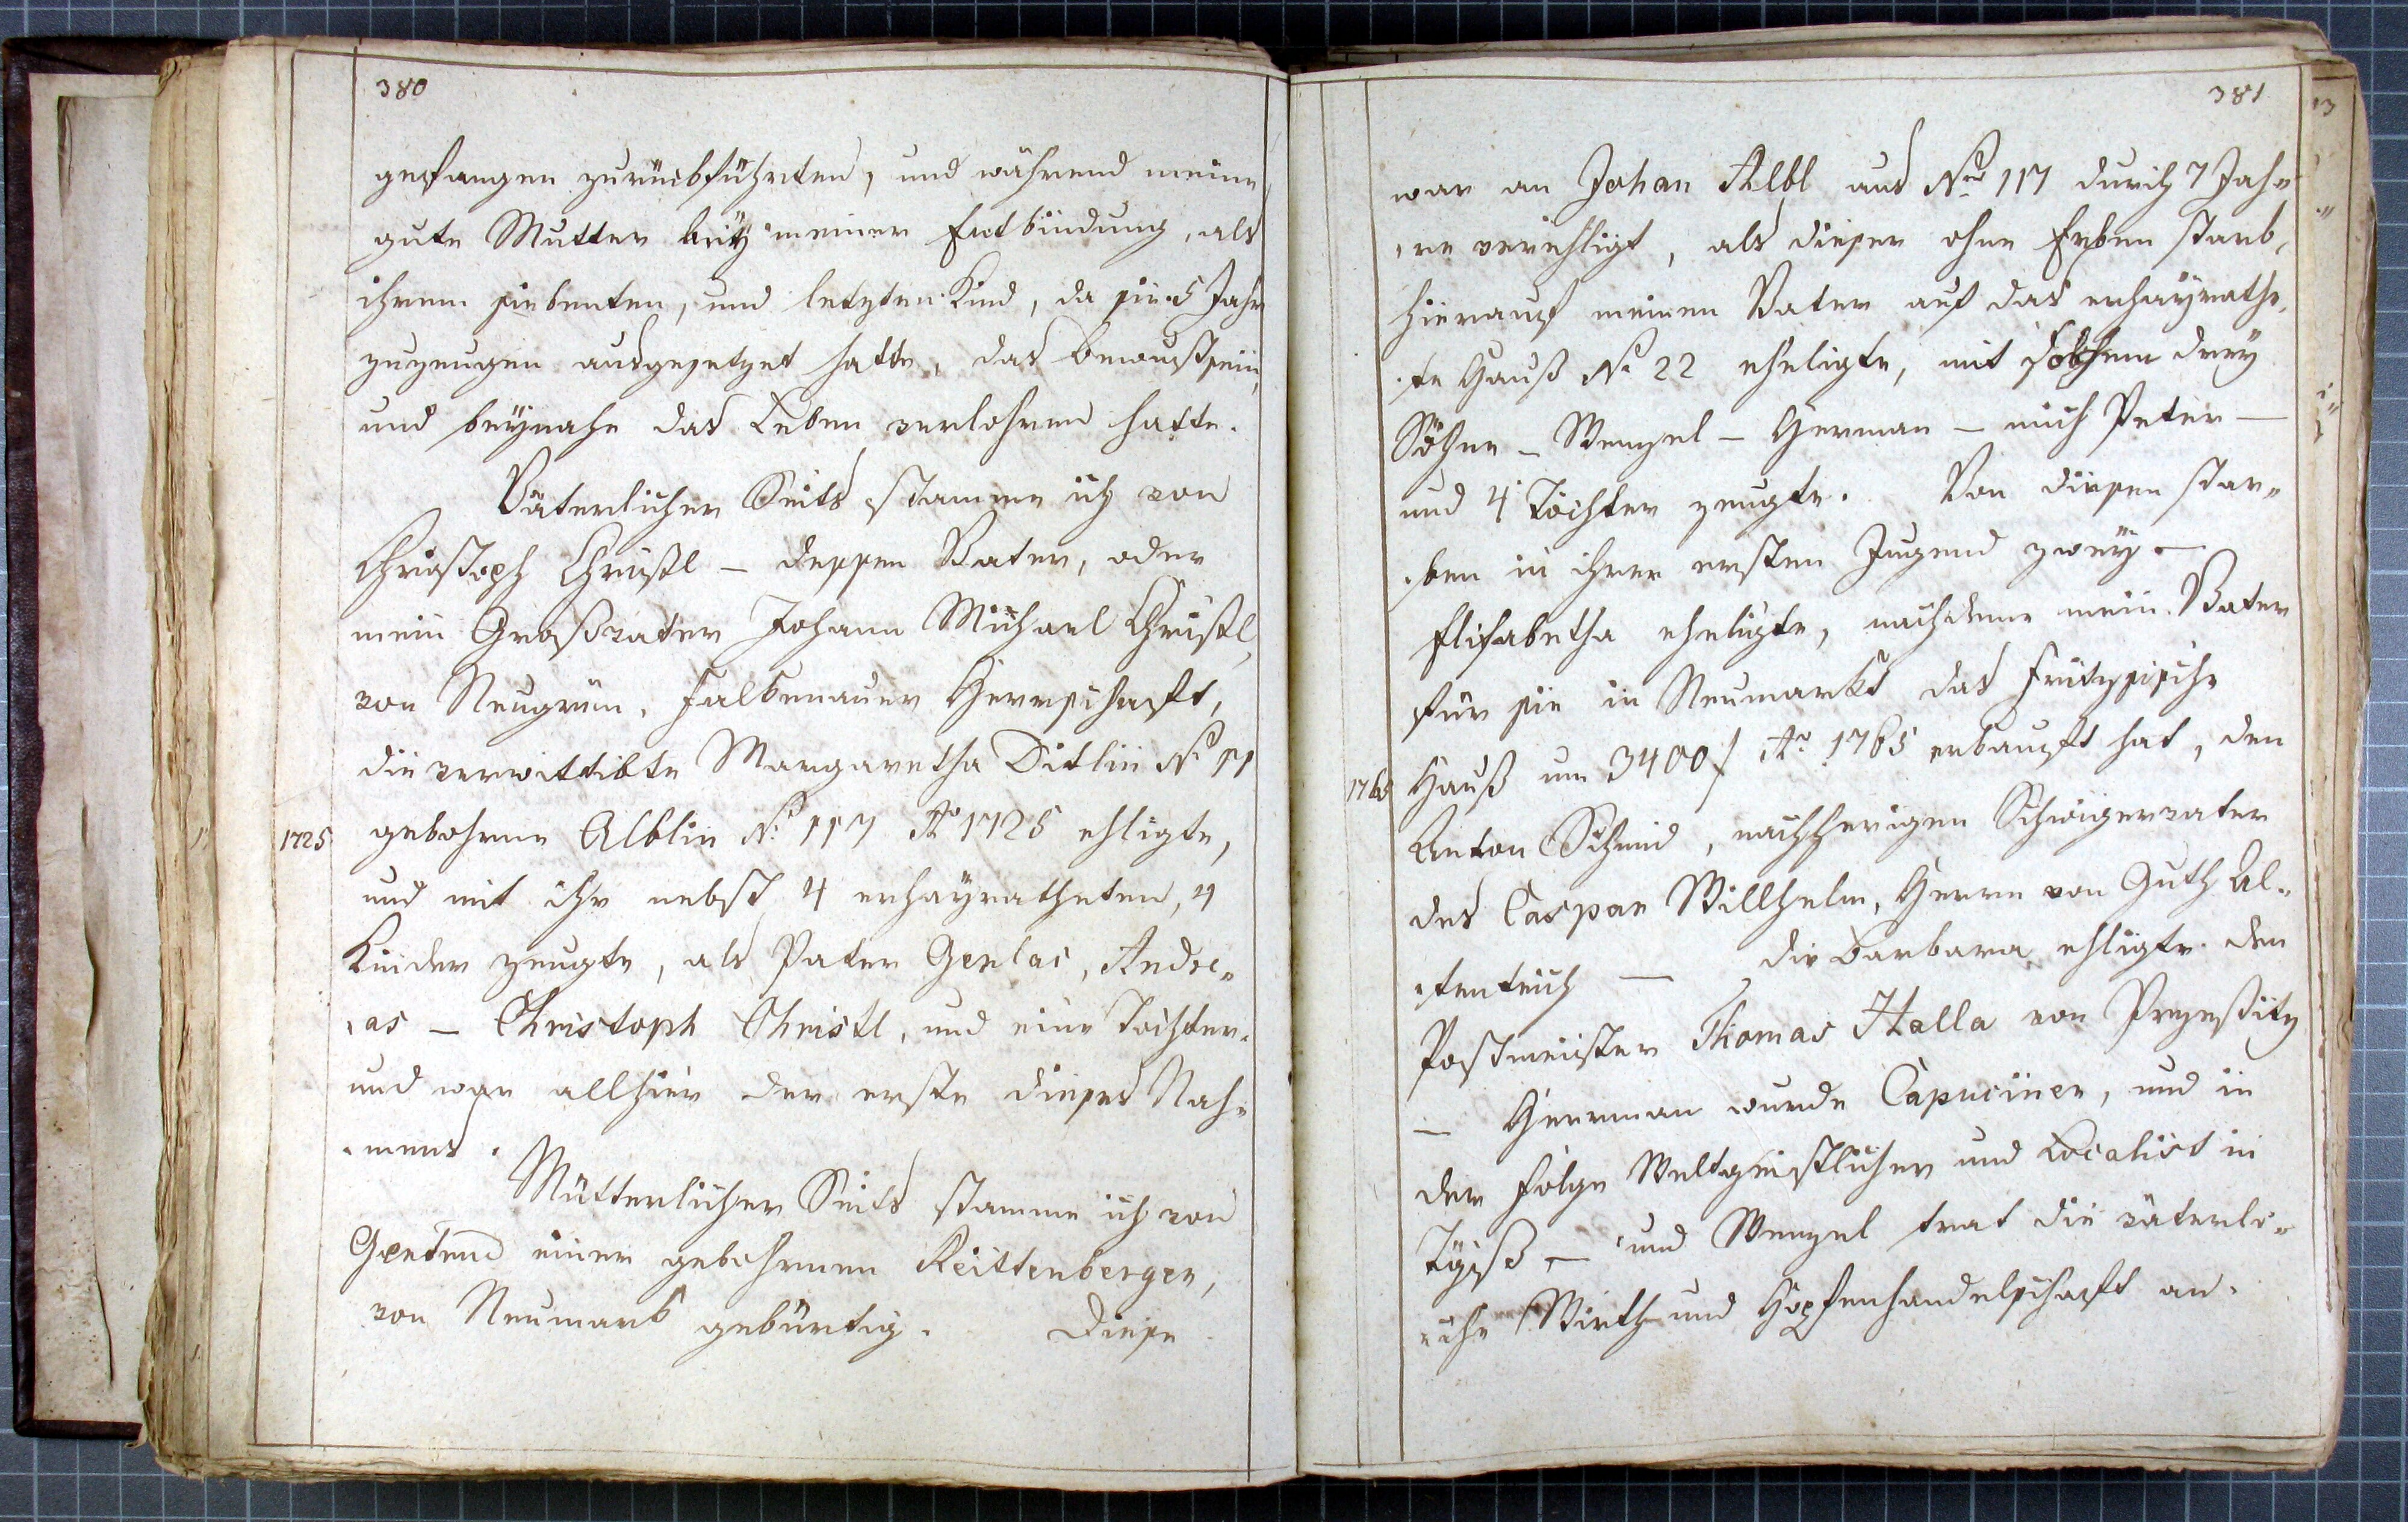 380
gefangen zurückführten, und während meine
gute Mutter bey meiner Entbindung, als
ihrem siebenten, und letzten Kind, da sie 5 Jahr
zuzeugen ausgesetzet hatte, das Bewustsein,
und beynahe das Leben verlohren hatte.
Väterlicher Seits stamme ich von
Christoph Christl – dessen Vater, oder
mein Großvater Johann Michael Christl,
von Neugrün, Falkenauer Herrschaft,
die verwittibte Margaretha Ditlin No 11
1725 gebohrne Alblin No 117 Ao 1725 ehligte,
und mit ihr nebst 4 erhayratheten, 4
Kinder zeugte, als Pater Gerlac, Andre„
„as – Christoph Christl, und eine Tochter.
und war allhier der erste dieses Nah„
„mens.
Mütterlicher Seits stamme ich von
Gertend einer gebohrnen Reittenberger,
von Neumark gebürtig. Diese
381
war an Johan Albl aus Nro 117 durch 7 Jah„
„re verehligt, als dieser ohne Erben starb,
hierauf meinen Vater auf das erhayrathe„
„te Hauß No 22 eheligte, mit solchem drey
Söhne – Wenzel – Herman – mich Peter –
und 4 Töchter zeugte. Von diesen star„
„ben in ihrer ersten Jugend zwey. –
Elisabetha eheligte, nachdeme mein Vater
für sie in Neumarkt das Fritzsische
1765 Hauß um 3400 f Ao 1765 erkauft hat, den
Anton Schmid, nachherigen Schwigervater
des Caspar Willhelm, Herrn von Guth Al„
„tenteich – die Barbara ehligte den
Postmeister Thomas Halla von Przeßitz
– Herrman wurde Capuciner, und in
der Folge Weltgeistlicher und Localist in
Tyiß, – und Wenzel trat die väterli„
„che Wirth- und Hopfenhandelschaft an.